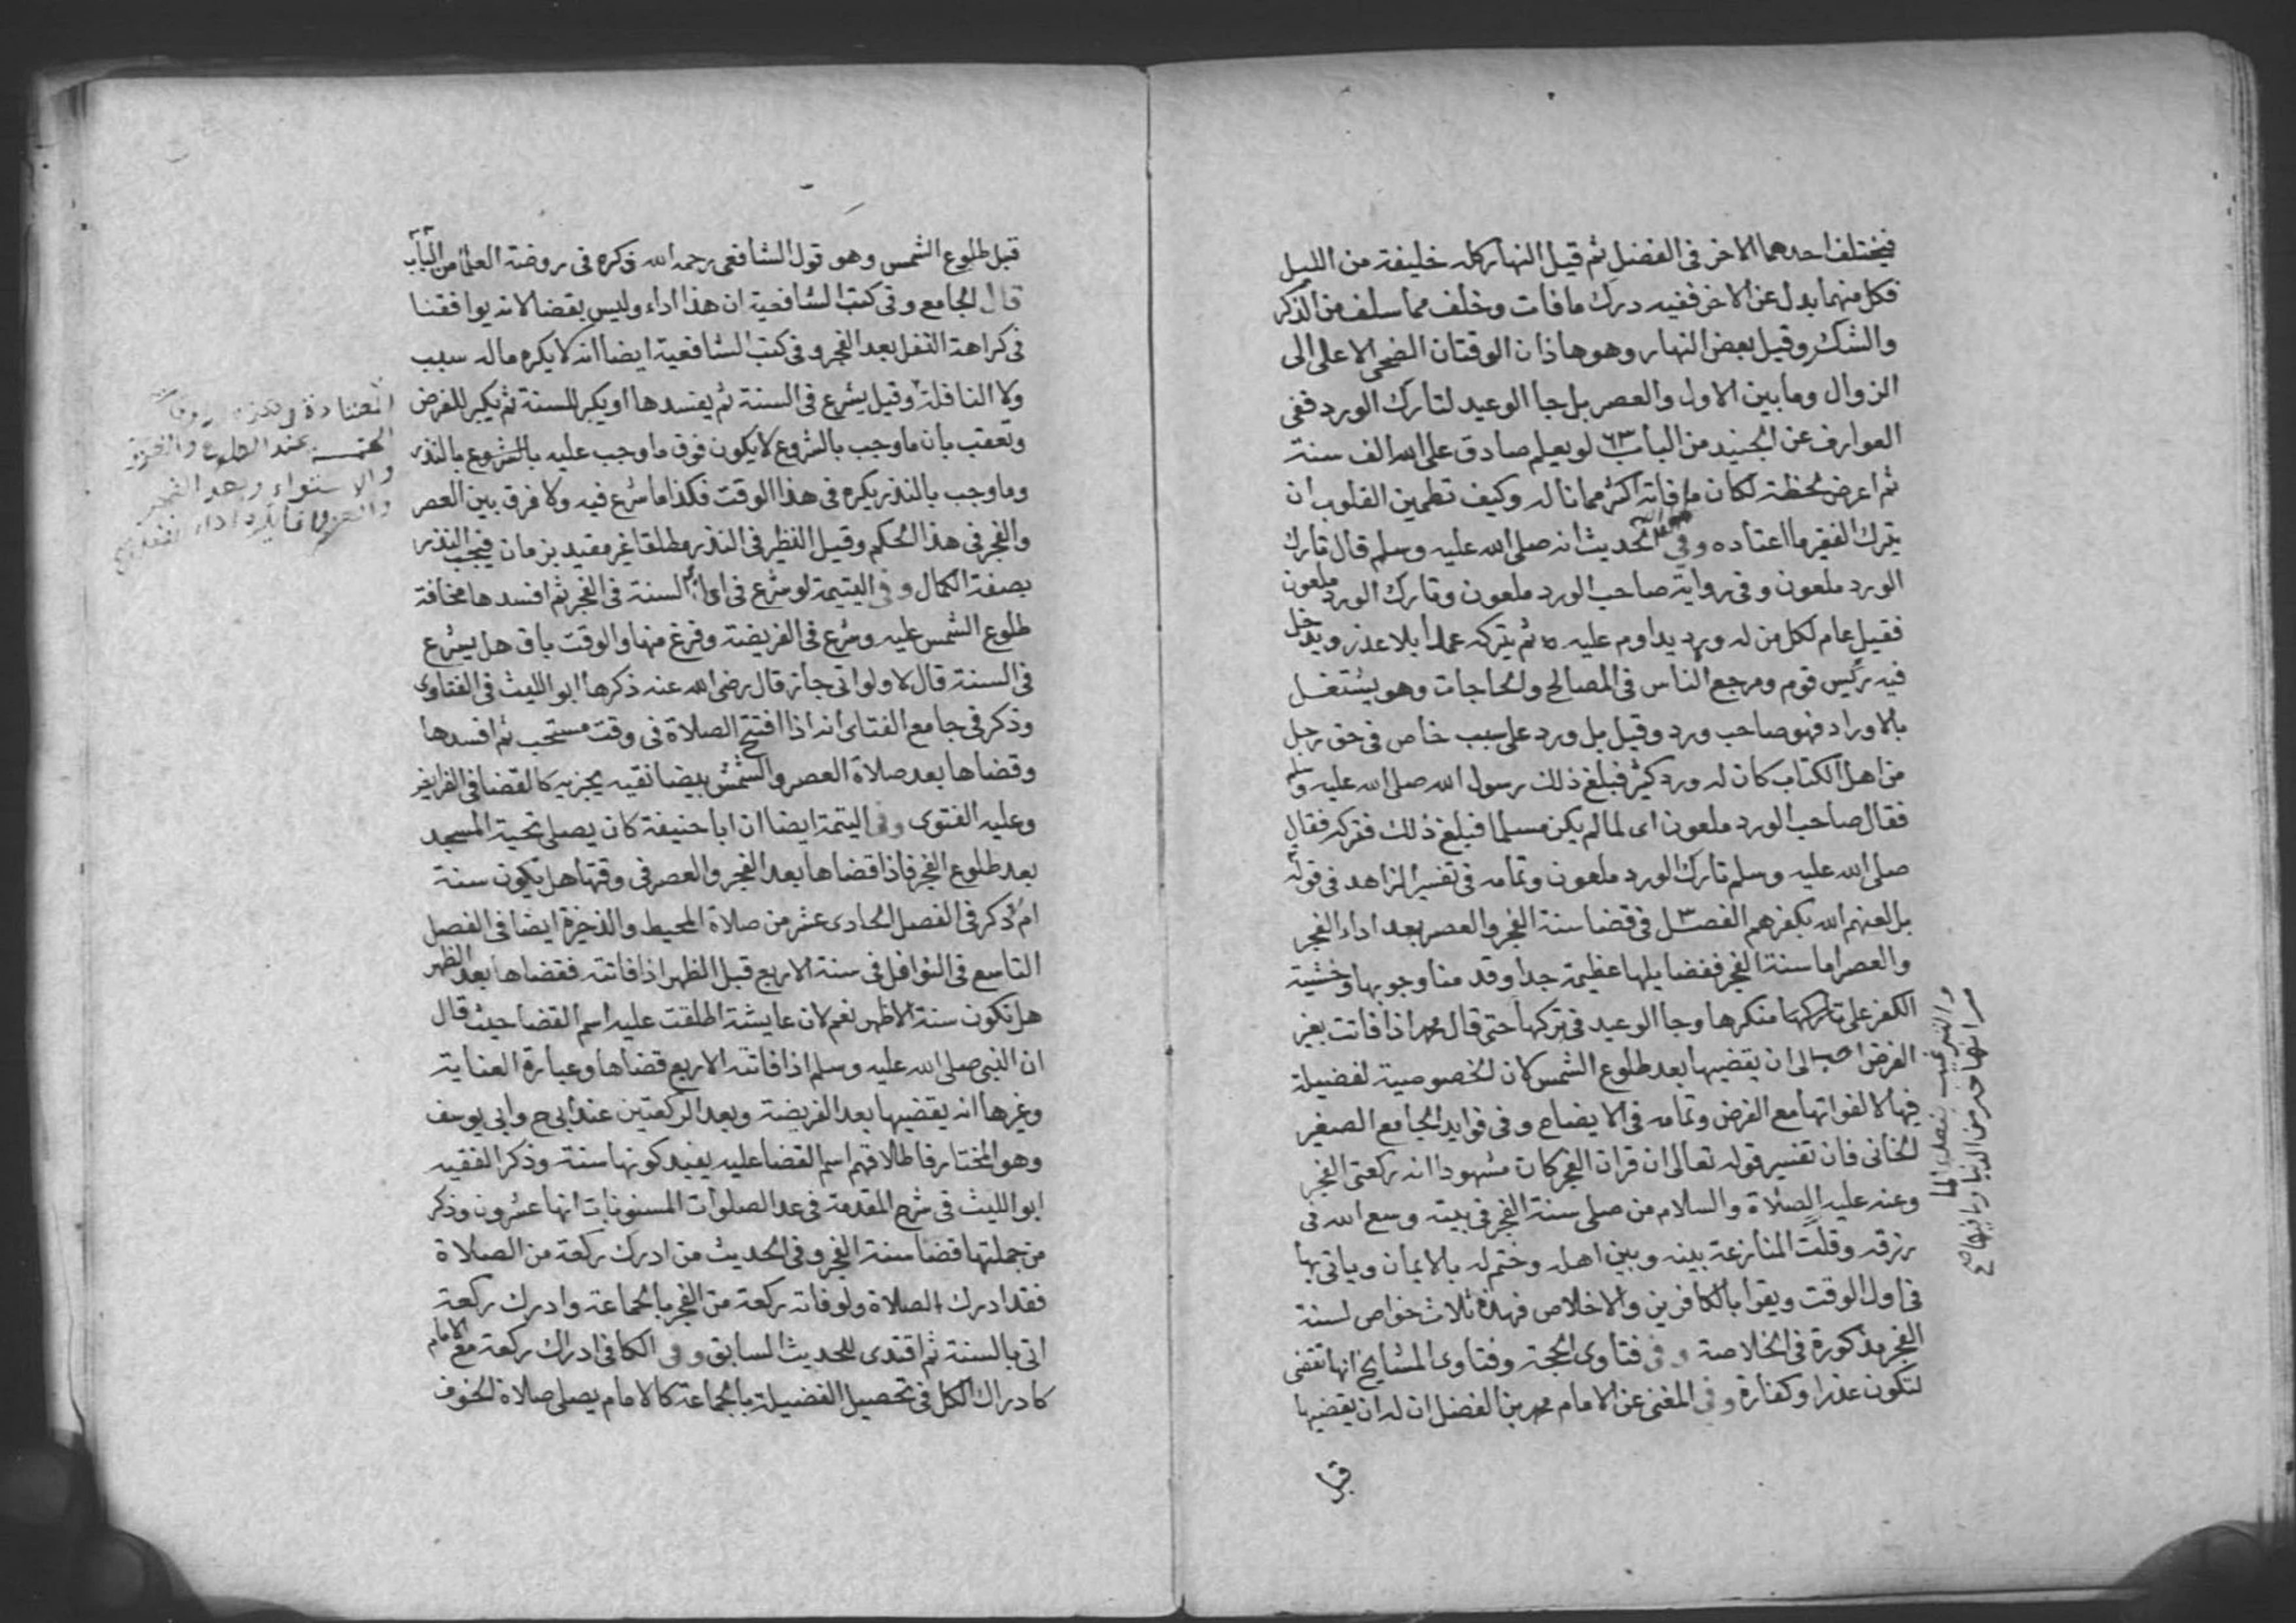 فيختلف احدهما الاخر فى الفضل ثم قيل النهار كله خليفة من الليل
فكل منهما بدل عن الاخر ففيه درك ما فات وخلف مما سلف من الذكر
والشكر وقيل بعض النهار وهو هاذان الوقتان الضحى الاعلى الى
الزوال وما بين الاول والعصر بل جا الوعيد لتارك الورد ففى
العوارف عن الجنيد من الباب ٦٣ لو يعلم صادق على الله الف سنة
ثم اعرض لحظة لكان ما فاته اكثر مما ناله وكيف تطمين القلوب ان
يترك الفقير ما اعتاده وفي الحديث انه صلى الله عليه وسلم قال تارك
الورد ملعون وفى رواية صاحب الورد ملعون وتارك الورد ملعون
فقيل عام لكل من له ورد يداوم عليه ثم يتركه عمدا بلا عذر ويدخل
فيه رئيس قوم ومرجع الناس فى المصالح والحاجات وهو يشتغل
بالاوراد فهو صاحب ورد وقيل بل ورد على سبب خاص فى حق رجل
من اهل الكتاب كان له ورد كثير فبلغ ذلك رسول الله صلى الله عليه وسلم
فقال صاحب الورد ملعون اى لما لم يكن مسلما فبلغ ذلك فتركه فقال
صلى الله عليه وسلم تارك الورد ملعون وتمامه فى تفسير الزاهد فى قوله
بل لعنهم الله بكفرهم الفصل ٣ فى قضا سنة الفجر والعصر بعد اداء الفجر
والعصر اما سنة الفجر ففضايلها عظيمة جدا وقد منا وجوبها وخشية
الكفر على تاركها منكرها وجا الوعيد فى تركها حتى قال محمد اذا فاتت بغير
الفرض احب الى ان يقضيها بعد طلوع الشمس لان الخصوصية لفضيلة
فيها لا لفواتها مع الفرض وتمامه فى الايضاح وفى فوايد الجامع الصغير
للخانى فان تفسير قوله تعالى ان قران الفجر كان مشهودا انه ركعتى الفجر
وعنه عليه الصلاة والسلام من صلى سنة الفجر فى بيته وسع الله فى
رزقه وقلت المنازعة بينه وبين اهله وختم له بالايمان وياتى بها
فى اول الوقت ويقرا بالكافرين والاخلاص فهذه ثلاث خواص لسنة
الفجر مذكورة فى الخلاصة وفى فتاوى الحجة وفتاوى المشايخ انها تقضى
لتكون عذرا وكفارة وفى المغنى عن الامام محمد بن الفضل ان له ان يقضيها
قبل
والترغيب
خير من الدنيا وما فيها صح
قبل طلوع الشمس وهو قول الشافعى رحمه الله ذكره فى روضة العلما من الباب
قال الجامع وفى كتب الشافعية ان هذا اداء وليس بقضا لانه يوافقنا
فى كراهة النفل بعد الفجر وفى كتب الشافعية ايضا انه لا يكره ما له سبب
ولا النافلة وقيل يشرع فى السنة ثم يفسدها او يكبر للسنة ثم يكبر للفرض
وتعقب بان ما وجب بالشروع لا يكون فوق ما وجب عليه بالشروع بالنذر
وما وجب بالنذر يكره فى هذا الوقت فكذا ما شرع فيه ولا فرق بين العصر
والفجر فى هذا الحكم وقيل الفظر فى النذر مطلقا غير مقيد بزمان فيجب النذر
بصفة الكمال وفى اليتيمة لو شرع فى اول السنة فى الفجر ثم افسدها مخافة
طلوع الشمس عليه وشرع فى الفريضة وفرغ منها والوقت باق هل يشرع
فى السنة قال لا ولو اتى جاز قال رضى الله عنه ذكرها ابو الليث فى الفتاوى
وذكر فى جامع الفتاى انه اذا افتتح الصلاة فى وقت مستحب ثم افسدها
وقضاها بعد صلاة العصر والشمس بيضا نقيه يجزيه كالقضا فى الفرايض
وعليه الفتوى وفى اليتمة ايضا ان ابا حنيفة كان يصلى تحية المسجد
بعد طلوع الفجر فاذا قضاها بعد الفجر والعصر فى وقتها هل يكون سنة
ام ذكر فى الفصل الحادى عشر من صلاة المحيط والذخيرة ايضا فى الفصل
التاسع فى النوافل فى سنة الاربع قبل الظهر اذا فاتته فقضاها بعد الظهر
هل تكون سنة الاظهر نعم لان عايشة اطلقت عليه اسم القضا حيث قال
ان النبى صلى الله عليه وسلم اذا فاتته الاربع قضاها وعبارة العناية
وغيرها انه يقضيها بعد الفريضة وبعد الركعتين عند ابى ح وابى يوسف
وهو المختار فاطلاقهم اسم القضا عليه يفيد كونها سنة وذكر الفقيه
ابو الليث فى شرح المقدمة فى عد الصلوات المسنونات انها عشرون وذكر
من جملتها قضا سنة الفجر وفى الحديث من ادرك ركعة من الصلاة
فقد ادرك الصلاة ولو فاته ركعة من الفجر بالجماعة وادرك ركعة
اتى بالسنة ثم اقتدى للحديث السابق وفى الكافى ادراك ركعة مع الامام
كادراك الكل فى تحصيل الفضيلة بالجماعة كالامام يصلى صلاة الخوف
عند الطلوع والغروب
والاستواء وبعد الفجر